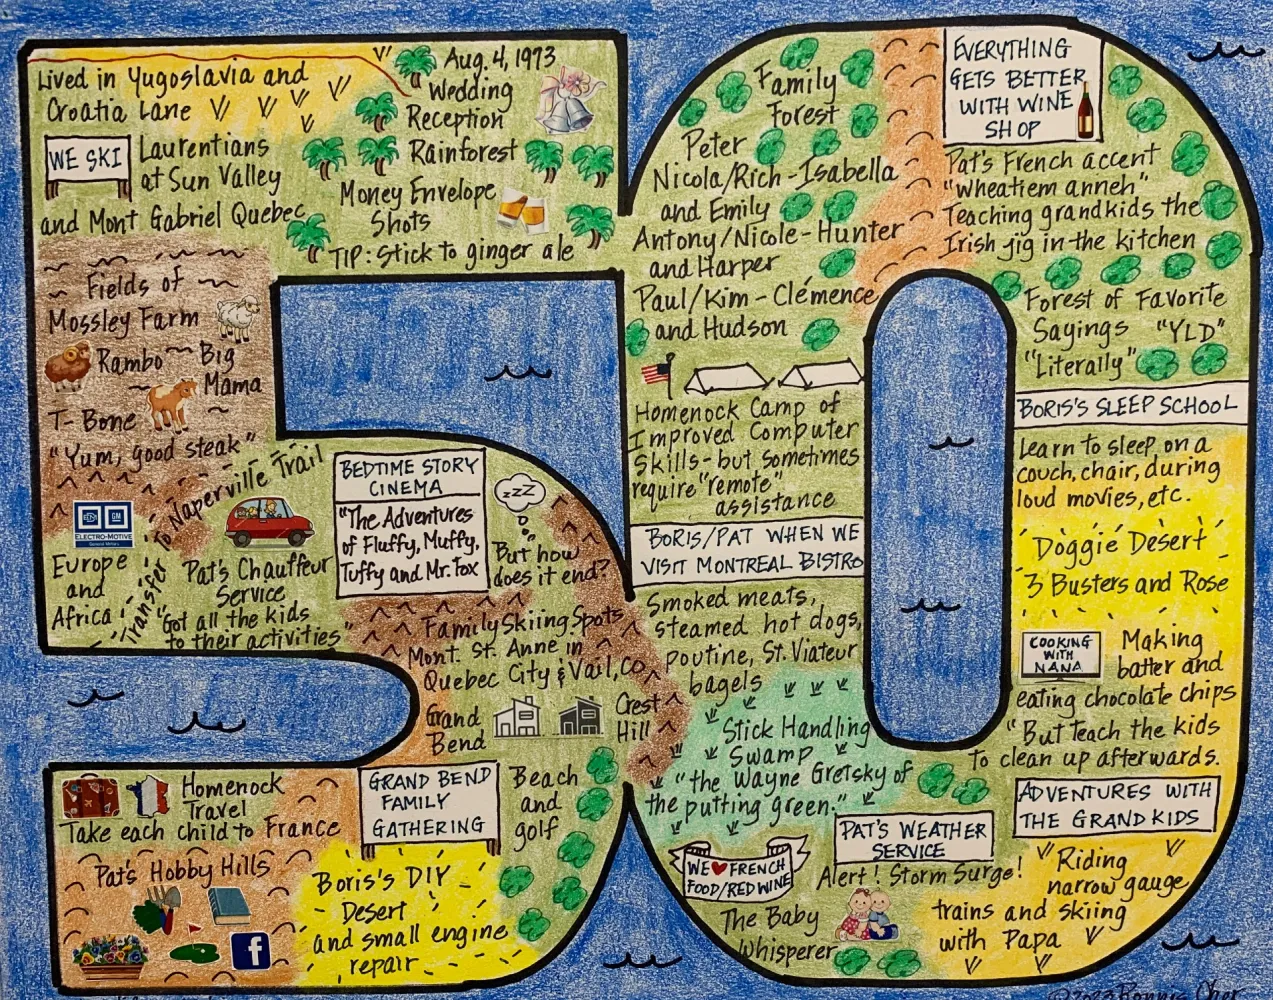 Lived in Yugoslavia and
Croatia Lane
WE SKI
Laurentians
at Sun Valley
and Mont Gabriel Quebec
Aug. 4, 1973
Wedding
Reception
Rainforest
Money Envelope
Shots
TIP: Stick to ginger ale
Fields of
Mossley Farm
Rambo
Big
Mama
T-Bone
"Yum, good steak"
ELECTRO-MOTIVE
Europe
and
Africa
Transfer to Naperville Trail
Pat's Chauffeur
Service
"Got all the kids
to their activities"
BEDTIME STORY
CINEMA
"The Adventures
of Fluffy, Muffy,
Tuffy and Mr. Fox
zzz
But how
does it end?
Family Skiing Spots
Mont. St. Anne in
Quebec City & Vail, CO
Grand
Bend
Crest
Hill
Homenock
Travel
Take each child to France
GRAND BEND
FAMILY
GATHERING
Beach
and
golf
Pat's Hobby Hills
f
Boris's DIY
Desert
and small engine
repair
Family
Forest
Peter
Nicola/Rich - Isabella
and Emily
Antony/Nicole - Hunter
and Harper
Paul/Kim - Clémence
and Hudson
Homenock Camp of
Improved Computer
Skills - but sometimes
require "remote"
assistance
BORIS/PAT WHEN WE
VISIT MONTREAL BISTRO
Smoked meats,
steamed hot dogs,
poutine, St. Viateur
bagels
Stick Handling
Swamp
"the Wayne Gretsky of
the putting green."
WE ♥ FRENCH
FOOD/RED WINE
The Baby
Whisperer
PAT'S WEATHER
SERVICE
Alert! Storm Surge!
EVERYTHING
GETS BETTER
WITH WINE
SHOP
Pat's French accent
"wheatiem anneh"
Teaching grandkids the
Irish jig in the kitchen
Forest of Favorite
Sayings "YLD"
"Literally"
BORIS'S SLEEP SCHOOL
Learn to sleep on a
couch, chair, during
loud movies, etc.
Doggie Desert
3 Busters and Rose
COOKING
WITH
NANA
Making
batter and
eating chocolate chips
"But teach the kids
to clean up afterwards.
ADVENTURES WITH
THE GRANDKIDS
Riding
narrow gauge
trains and skiing
with Papa